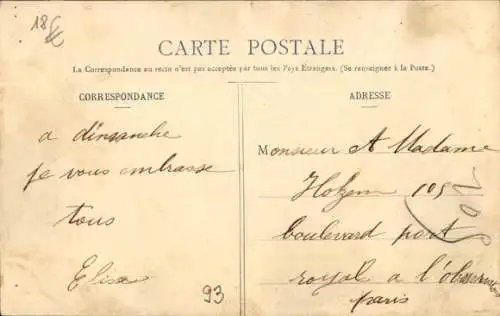 CARTE POSTALE
La Correspondance au recto n'est pas acceptée par tous les Pays Étrangers. (Se renseigner à la Poste.)
CORRESPONDANCE
a dimanche
je vous embrasse
tous
Elisa
93
ADRESSE
Monsieur et Madame
105
boulevard port
royal a l'observatoire
paris